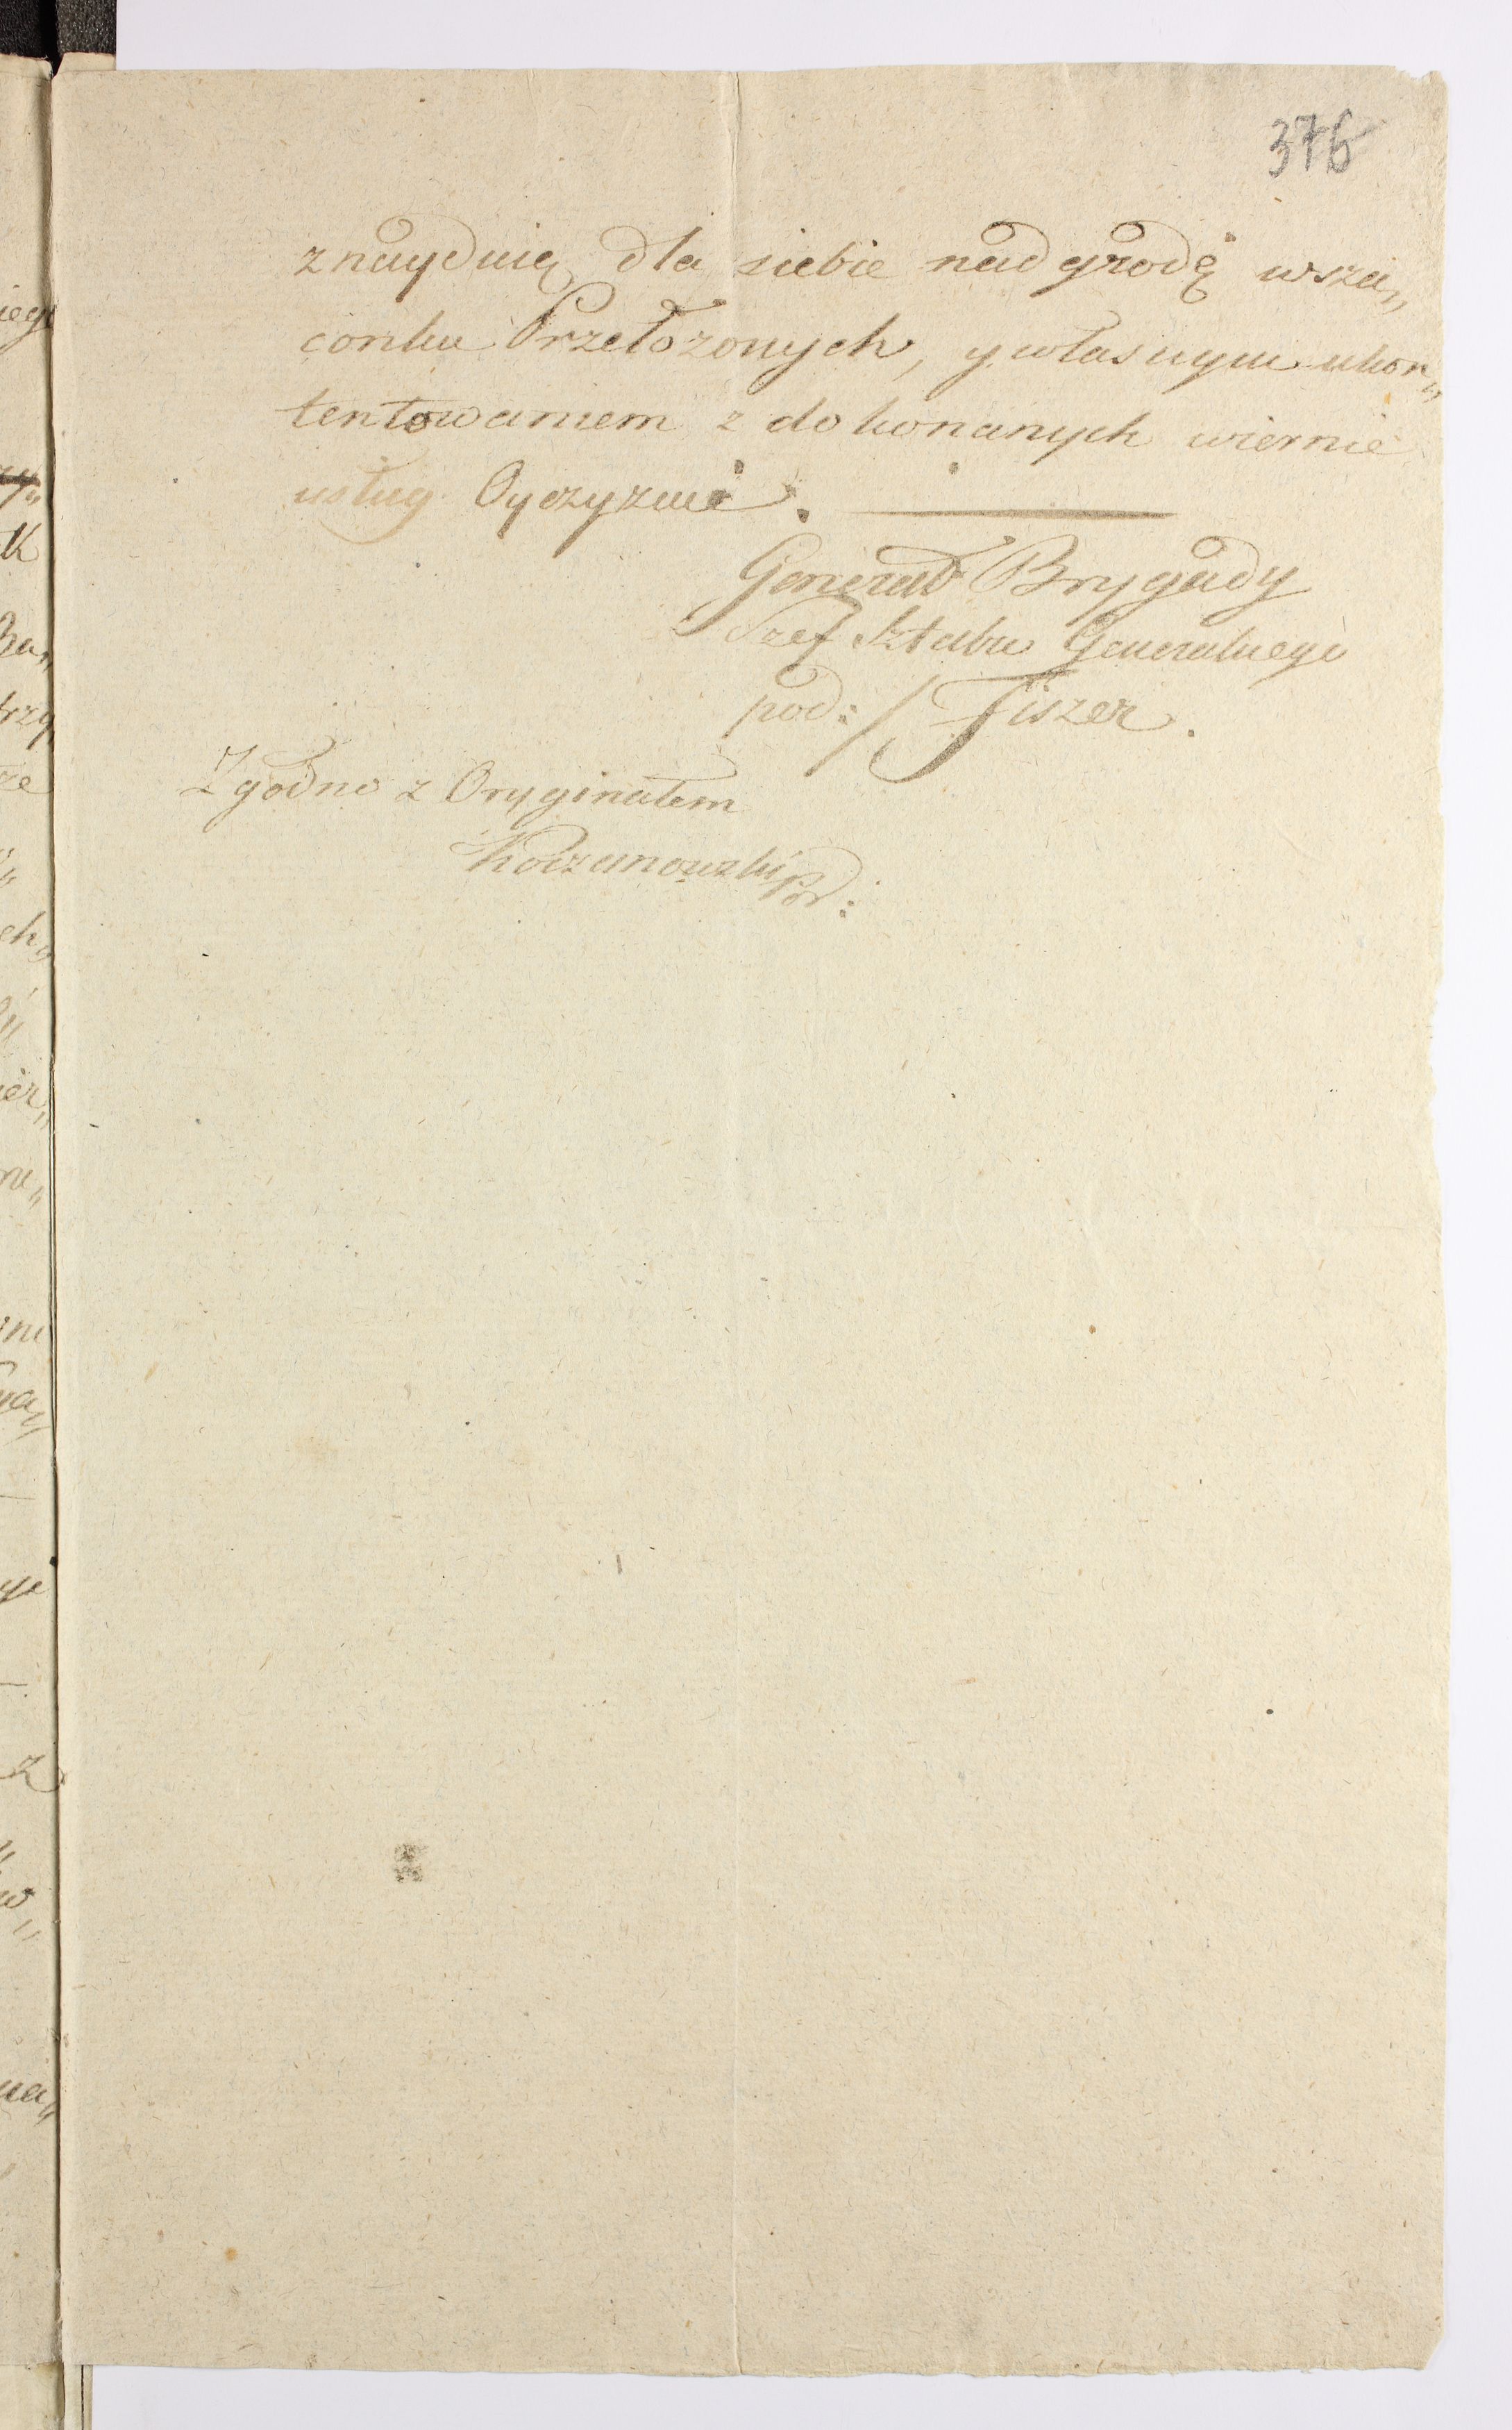 376
znayduię dla siebie nadgrodę wsza„
conku Przełożonych, y własnym ukon„
tentowaniem z dokonanych wiernie
usług Oyczyznie.
Generał Brygady
Szef Sztabu Generalnego
pod: / Fiszer.
Zgodno z Oryginałem